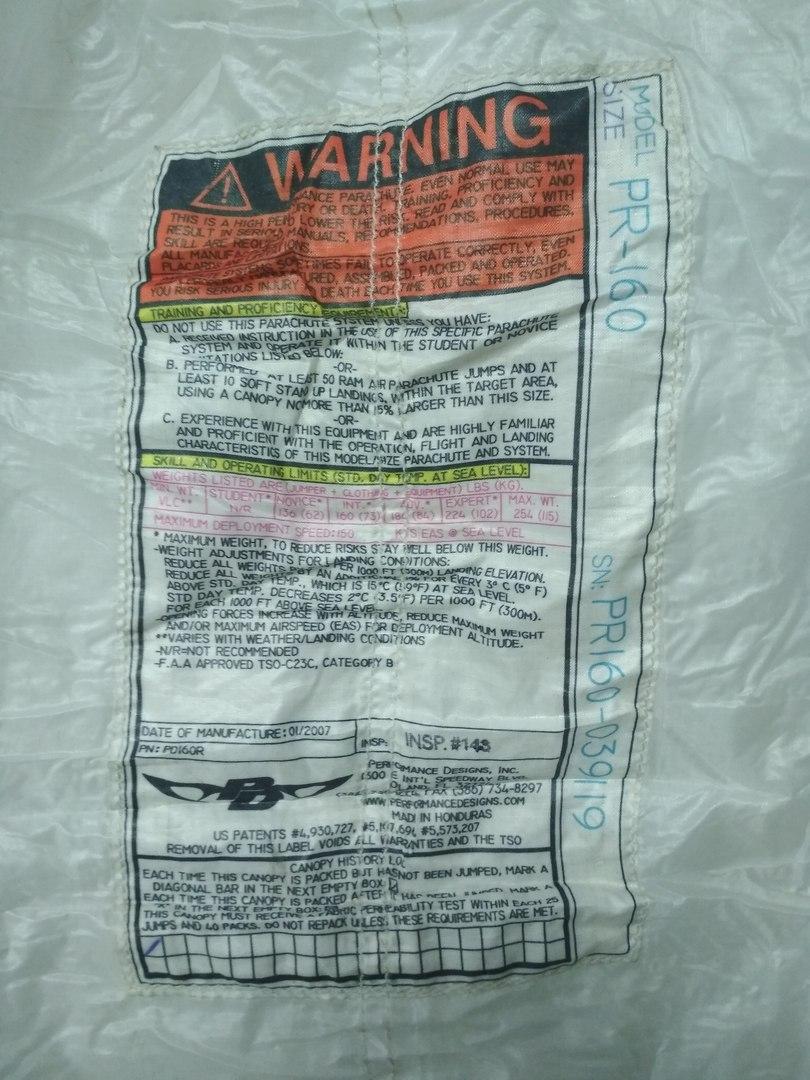 WARNING
THIS IS A HIGH ANCE PARACHUTE. EVEN NORMAL USE MAY
RESULT IN SERIOUS RY OR DEATH. TRAINING, PROFICIENCY AND
SKILL ARE LOWER THE RISK. READ AND COMPLY WITH
ALL MANUALS, RECOMMENDATIONS, PROCEDURES,
PLACARD
SOMETIMES FAIL TO OPERATE CORRECTLY, EVEN
URED, ASSEMBLED, PACKED AND OPERATED.
YOU RISK SERIOUS INJURY DEATH EACH TIME YOU USE THIS SYSTEM.
TRAINING AND PROFICIENCY
DO NOT USE THIS PARACHUTE SYSTEM UNLESS YOU HAVE:
A. RECEIVED INSTRUCTION IN THE USE OF THIS SPECIFIC PARACHUTE
SYSTEM AND OPERATE IT WITHIN THE STUDENT OR NOVICE
ITATIONS LISTED BELOW:
-OR-
B. PERFORMED AT LEAST 50 RAM AIR PARACHUTE JUMPS AND AT
LEAST 10 SOFT STAND UP LANDINGS, WITHIN THE TARGET AREA,
USING A CANOPY NO MORE THAN 15% LARGER THAN THIS SIZE.
-OR-
C. EXPERIENCE WITH THIS EQUIPMENT AND ARE HIGHLY FAMILIAR
AND PROFICIENT WITH THE OPERATION, FLIGHT AND LANDING
CHARACTERISTICS OF THIS MODEL/SIZE PARACHUTE AND SYSTEM.
SKILL AND OPERATING LIMITS (STD. DAY TEMP. AT SEA LEVEL):
WEIGHTS LISTED ARE (JUMPER + CLOTHING + EQUIPMENT) LBS (KG).
WT. STUDENT* NOVICE* INT.* ADV.* EXPERT* MAX. WT.
VLC** N/R 136 (62) 160 (73) 184 (84) 224 (102) 254 (115)
MAXIMUM DEPLOYMENT SPEED: 150 KTS EAS @ SEA LEVEL
* MAXIMUM WEIGHT, TO REDUCE RISKS STAY WELL BELOW THIS WEIGHT.
-WEIGHT ADJUSTMENTS FOR LANDING CONDITIONS:
REDUCE ALL WEIGHTS PER 1000 FT (300M) LANDING ELEVATION.
REDUCE ALL WEIGHTS BY AN ADDITIONAL FOR EVERY 3° C (5° F)
ABOVE STD. DAY TEMP., WHICH IS 15°C (59°F) AT SEA LEVEL.
STD DAY TEMP. DECREASES 2°C (3.5°F) PER 1000 FT (300M).
FOR EACH 1000 FT ABOVE SEA LEVEL
-OPENING FORCES INCREASE WITH ALTITUDE, REDUCE MAXIMUM WEIGHT
AND/OR MAXIMUM AIRSPEED (EAS) FOR DEPLOYMENT ALTITUDE.
**VARIES WITH WEATHER/LANDING CONDITIONS
-N/R=NOT RECOMMENDED
-F.A.A APPROVED TSO-C23C, CATEGORY B
DATE OF MANUFACTURE: 01/2007
PN: PD160R
INSP: INSP. #143
PD
PERFORMANCE DESIGNS, INC.
1300 E INT'L SPEEDWAY BLVD.
FL FAX (386) 734-8297
WWW.PERFORMANCEDESIGNS.COM
MADE IN HONDURAS
US PATENTS #4,930,727, #5,573,207
REMOVAL OF THIS LABEL VOIDS ALL WARRANTIES AND THE TSO
CANOPY HISTORY LOG
EACH TIME THIS CANOPY IS PACKED BUT HAS NOT BEEN JUMPED, MARK A
DIAGONAL BAR IN THE NEXT EMPTY BOX
EACH TIME THIS CANOPY IS PACKED AFTER IT HAS BEEN JUMPED, MARK A
"X" IN THE NEXT EMPTY BOX.
THIS CANOPY MUST RECEIVE A FABRIC PERMEABILITY TEST WITHIN EACH 25
JUMPS AND 40 PACKS. DO NOT REPACK UNLESS THESE REQUIREMENTS ARE MET.
MODEL PR-160
SIZE
SN: PR160-039119